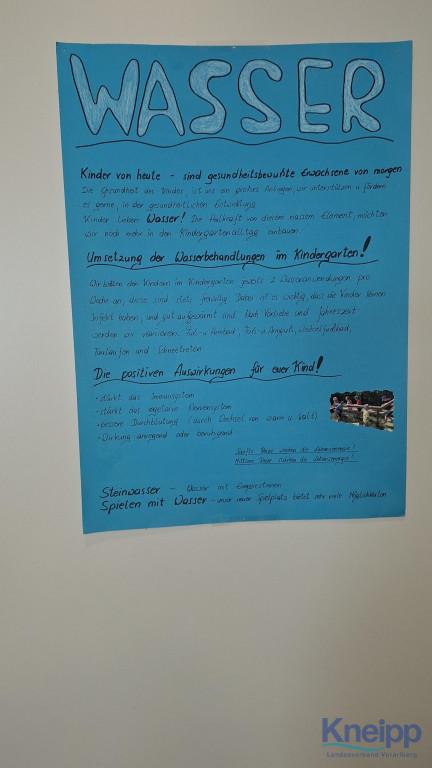 WASSER
Kinder von heute - sind gesundheitsbewußte Erwachsene von morgen
Die Gesundheit der Kinder ist uns ein großes Anliegen, wir unterstützen u. fördern
es gerne, in der gesundheitlichen Entwicklung.
Kinder lieben Wasser! Die Heilkraft von diesem nassem Element, möchten
wir noch mehr in den Kindergartenalltag einbauen.
Umsetzung der Wasserbehandlungen im Kindergarten!
Wir bieten den Kindern im Kindergarten jeweils 2 Wasseranwendungen pro
Woche an, diese sind stets freiwillig. Dabei ist es wichtig, dass die Kinder keinen
Infekt haben, und gut aufgewärmt sind. Nach Vorliebe und Jahreszeit
werden wir variieren. Fuß- u. Armbad, Fuß- u. Armguß, Wechselfußbad,
Taulaufen und Schneetreten
Die positiven Auswirkungen für euer Kind!
• stärkt das Immunsystem
• stärkt das vegetative Nervensystem
• bessere Durchblutung (durch Wechsel von warm u. kalt)
• Wirkung anregend oder beruhigend
Sanfte Reize wecken die Lebensenergie!
Mittlere Reize stärken die Lebensenergie!
Steinwasser - Wasser mit
Spielen mit Wasser - unser neuer Spielplatz bietet sehr viele Möglichkeiten
Kneipp
Landesverband Vorarlberg